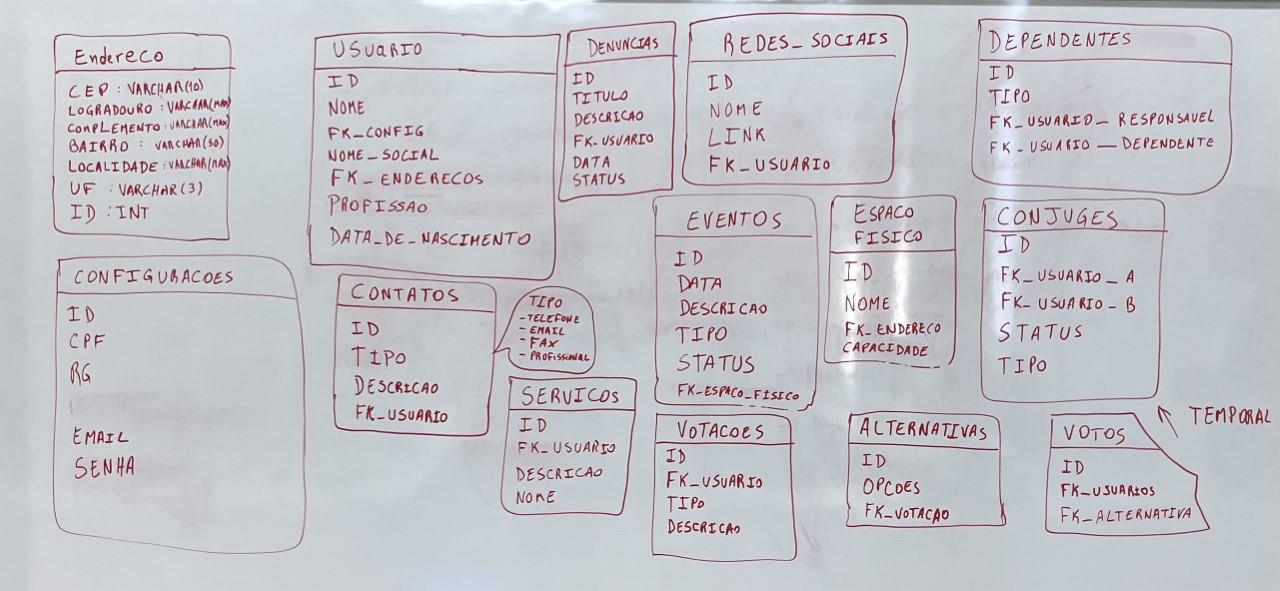 Endereco
CEP : VARCHAR(10)
LOGRADOURO : VARCHAR(MAX)
COMPLEMENTO : VARCHAR(MAX)
BAIRRO : VARCHAR(50)
LOCALIDADE : VARCHAR(MAX)
UF : VARCHAR(3)
ID : INT
USUARIO
ID
NOME
FK_CONFIG
NOME_SOCIAL
FK_ENDERECOS
PROFISSAO
DATA_DE_NASCIMENTO
DENUNCIAS
ID
TITULO
DESCRICAO
FK_USUARIO
DATA
STATUS
REDES_SOCIAIS
ID
NOME
LINK
FK_USUARIO
DEPENDENTES
ID
TIPO
FK_USUARIO_RESPONSAVEL
FK_USUARIO_DEPENDENTE
CONFIGURACOES
ID
CPF
RG
EMAIL
SENHA
CONTATOS
ID
TIPO
DESCRICAO
FK_USUARIO
TIPO
- TELEFONE
- EMAIL
- FAX
- PROFISSIONAL
SERVICOS
ID
FK_USUARIO
DESCRICAO
NOME
EVENTOS
ID
DATA
DESCRICAO
TIPO
STATUS
FK_ESPACO_FISICO
ESPACO
FISICO
ID
NOME
FK_ENDERECO
CAPACIDADE
CONJUGES
ID
FK_USUARIO_A
FK_USUARIO_B
STATUS
TIPO
VOTACOES
ID
FK_USUARIO
TIPO
DESCRICAO
ALTERNATIVAS
ID
OPCOES
FK_VOTACAO
VOTOS
ID
FK_USUARIOS
FK_ALTERNATIVA
TEMPORAL